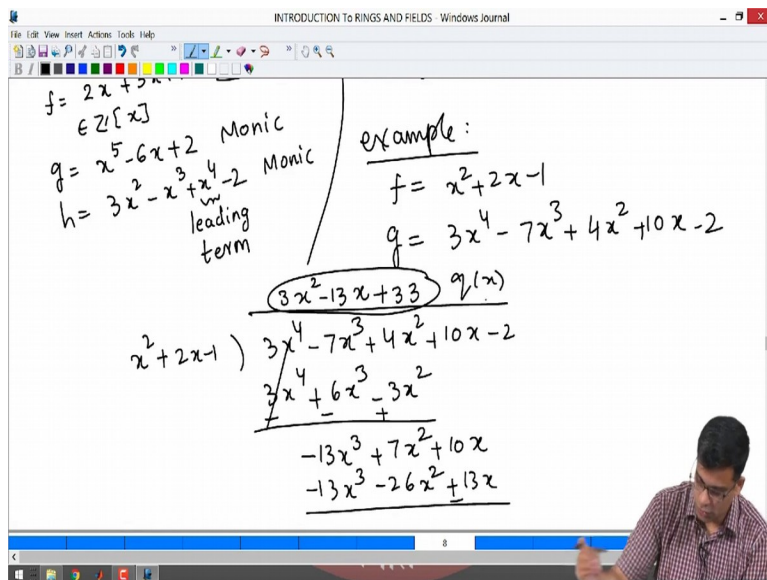 INTRODUCTION To RINGS AND FIELDS - Windows Journal
File Edit View Insert Actions Tools Help
B I
f = 2x +
∈ ℤ[x]
g = x^5 - 6x + 2 Monic
h = 3x^2 - x^3 + x^4 - 2 Monic
leading
term
example:
f = x^2 + 2x - 1
g = 3x^4 - 7x^3 + 4x^2 + 10x - 2
3x^2 - 13x + 33 q(x)
x^2 + 2x - 1 ) 3x^4 - 7x^3 + 4x^2 + 10x - 2
3x^4 + 6x^3 - 3x^2
- - +
-13x^3 + 7x^2 + 10x
-13x^3 - 26x^2 + 13x
-
8